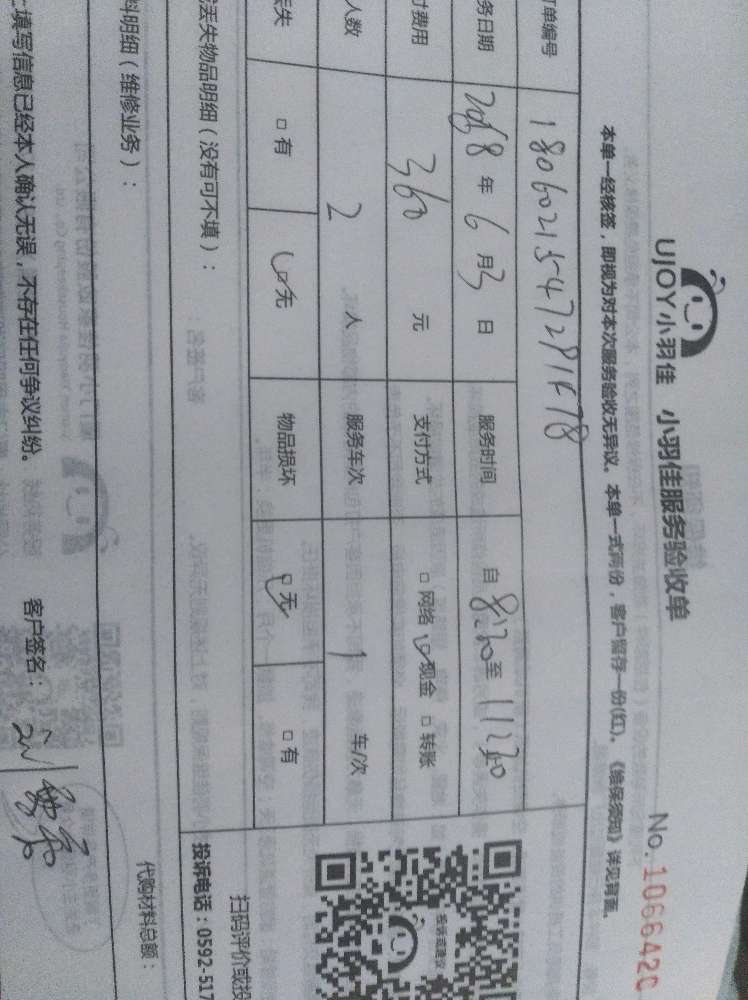 UJOY小羽佳 小羽佳服务验收单
No. 1066420
本单一经核签，即视为对本次服务验收无异议。本单一式两份，客户留存一份(红)。《维保须知》详见背面。
单编号
务日期 2018年6月3日 服务时间 自8:30至11:30
付费用 360元 支付方式 □网络 □现金 □转账
人数 2人 服务车次 1车/次
丢失 □有 □无 物品损坏 □无 □有
丢失物品明细（没有可不填）：
料明细（维修业务）：
扫码评价或投
投诉电话：0592-517
投诉或建议
代购材料总额：
填写信息已经本人确认无误，不存在任何争议纠纷。 客户签名：